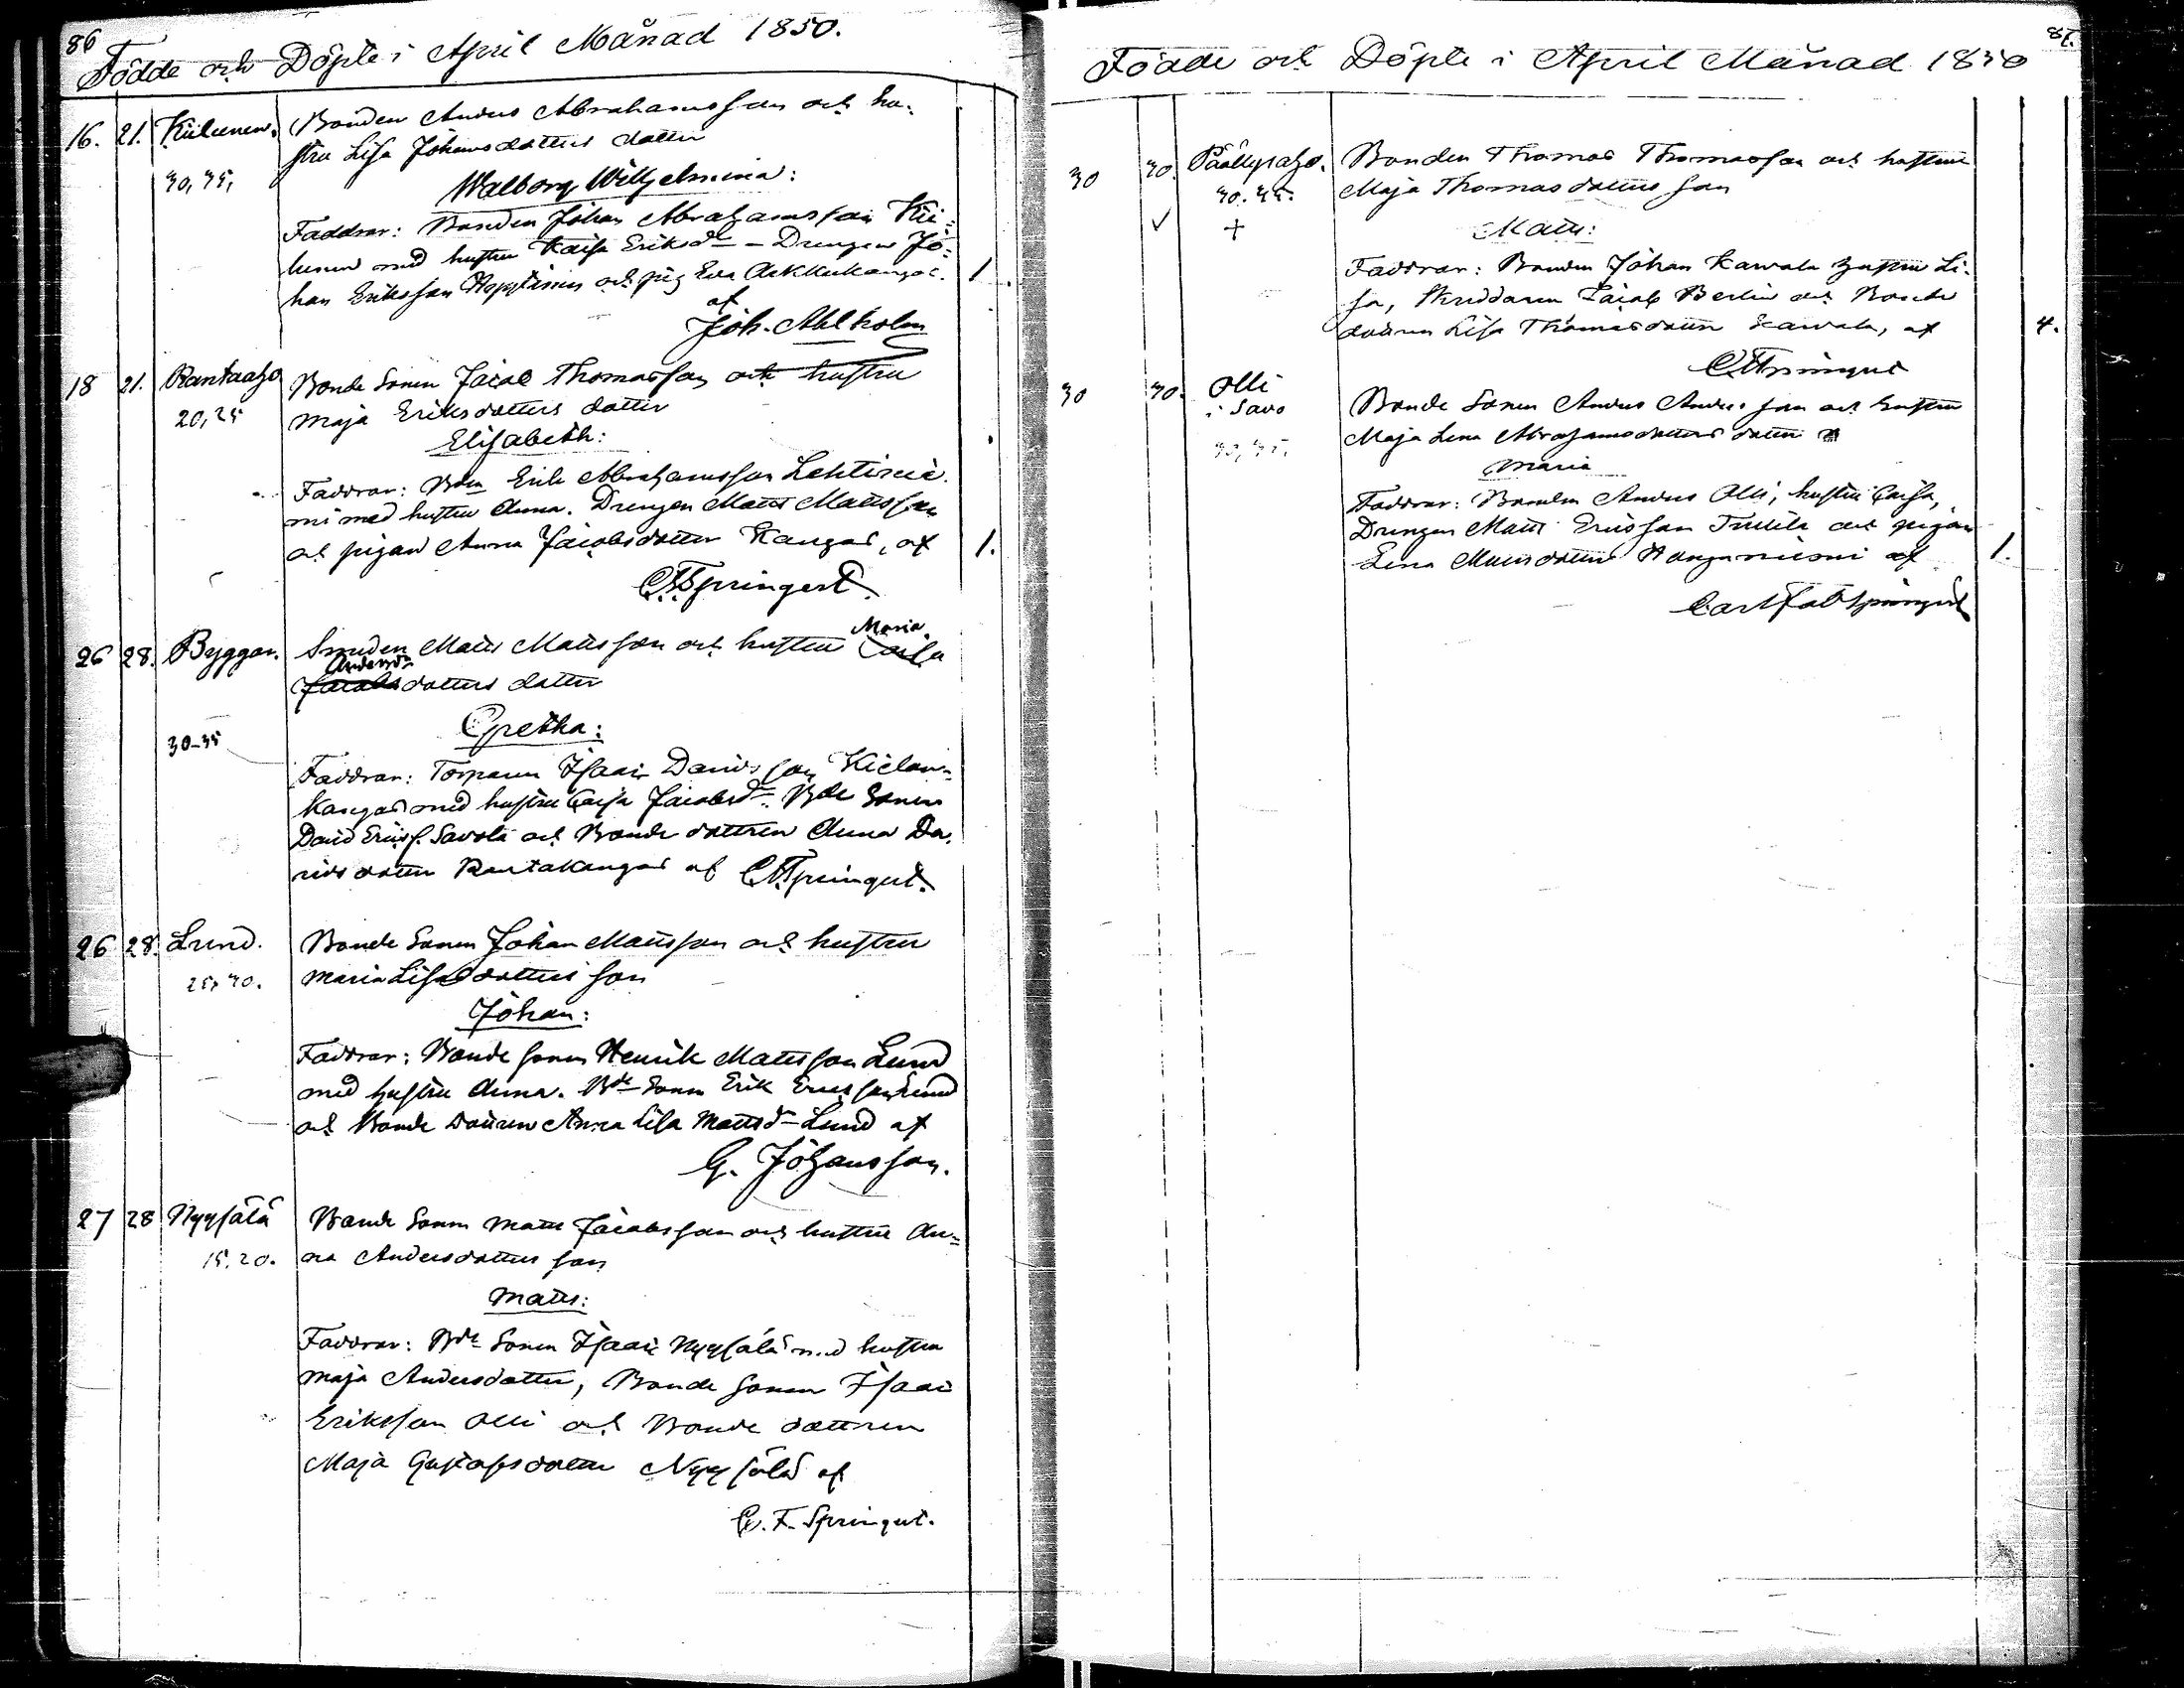 86
Födde och Döpte i April Månad 1850.
16. 21. Kiilunen. Bonden Anders Abrahamsson och hu-
stru Lisa Johansdotters dotter
30, 35,
Walborg Wilhelmina:
Faddrar: Bonden Johan Abrahamsson Kii-
lunen med hustru Kaisa Eriksdr – Drengen Jo-
han Eriksson och pig Eva 1
af
Joh. Ahlholm
18 21. Rantaaho Bonde Sonen Jacob Thomasson och hustru
20,25 Maja Eriksdotters dotter
Elisabeth:
Faddrar: Bden Erik Abrahamsson Lehtinie-
mi med hustru Anna. Drengen Matts Mattsson
och pigan Anna Jacobsdotter Kangas, af 1.
CFSpringert
26 28. Byggar. Smeden Matts Mattsson och hustru Maria Caisa
Andersdr Jacobsdotters dotter
Gretha:
30-35
Faddrar: Torparen Isaac Davidsson Kielan-
kangas med hustru Caisa Jacobsdr. Bde Sonen
David Erics. Savola och Bonde dottren Anna Da-
vidsdotter Rautakangas af CFSpringert.
26 28. Lund. Bonde Sonen Johan Mattsson och hustru
25,30. Maria Lisa dotters son
Johan:
Faddrar: Bonde sonen Henrik Mattsson Lund
med hustru Anna. Bde Sonen Erik Ericsson Lund
och Bonde dottren Anna Lisa Mattsdr Lund af
G. Johansson.
27 28 Nyysälä Bonde Sonen Matts Jacobsson och hustru An-
15.20. na Andersdotters son
Matts:
Faddrar: Bde Sonen Isaac Nyysälä med hustru
Maja Andersdotter, Bonde sonen Isaac
Eriksson Olli och Bonde dottren
Maja Gustafsdotter Nyysälä af
C. F. Springert.
87.
Födde och Döpte i April Månad 1850
30 30. Päällysaho. Bonden Thomas Thomasson och hustru
30.35. Maja Thomasdotters son
✓ +
Matts:
Faddrar: Bonden Johan Kawala hustru Li-
sa, Skreddaren Jacob Berlin och Bonde
dottren Lisa Thomasdotter Kawala, af 4.
CFSpringert
30 30. Olli Bonde Sonen Anders Andersson och hustru
i Savo Maja Lena Abrahamsdotters dotter
30,35.
Maria
Faddrar: Bonden Anders Olli, hustru Caisa,
Drengen Matts Ericsson och pigan
Lena Mattsdotter Kanganniemi af 1.
Carl Fab Springert